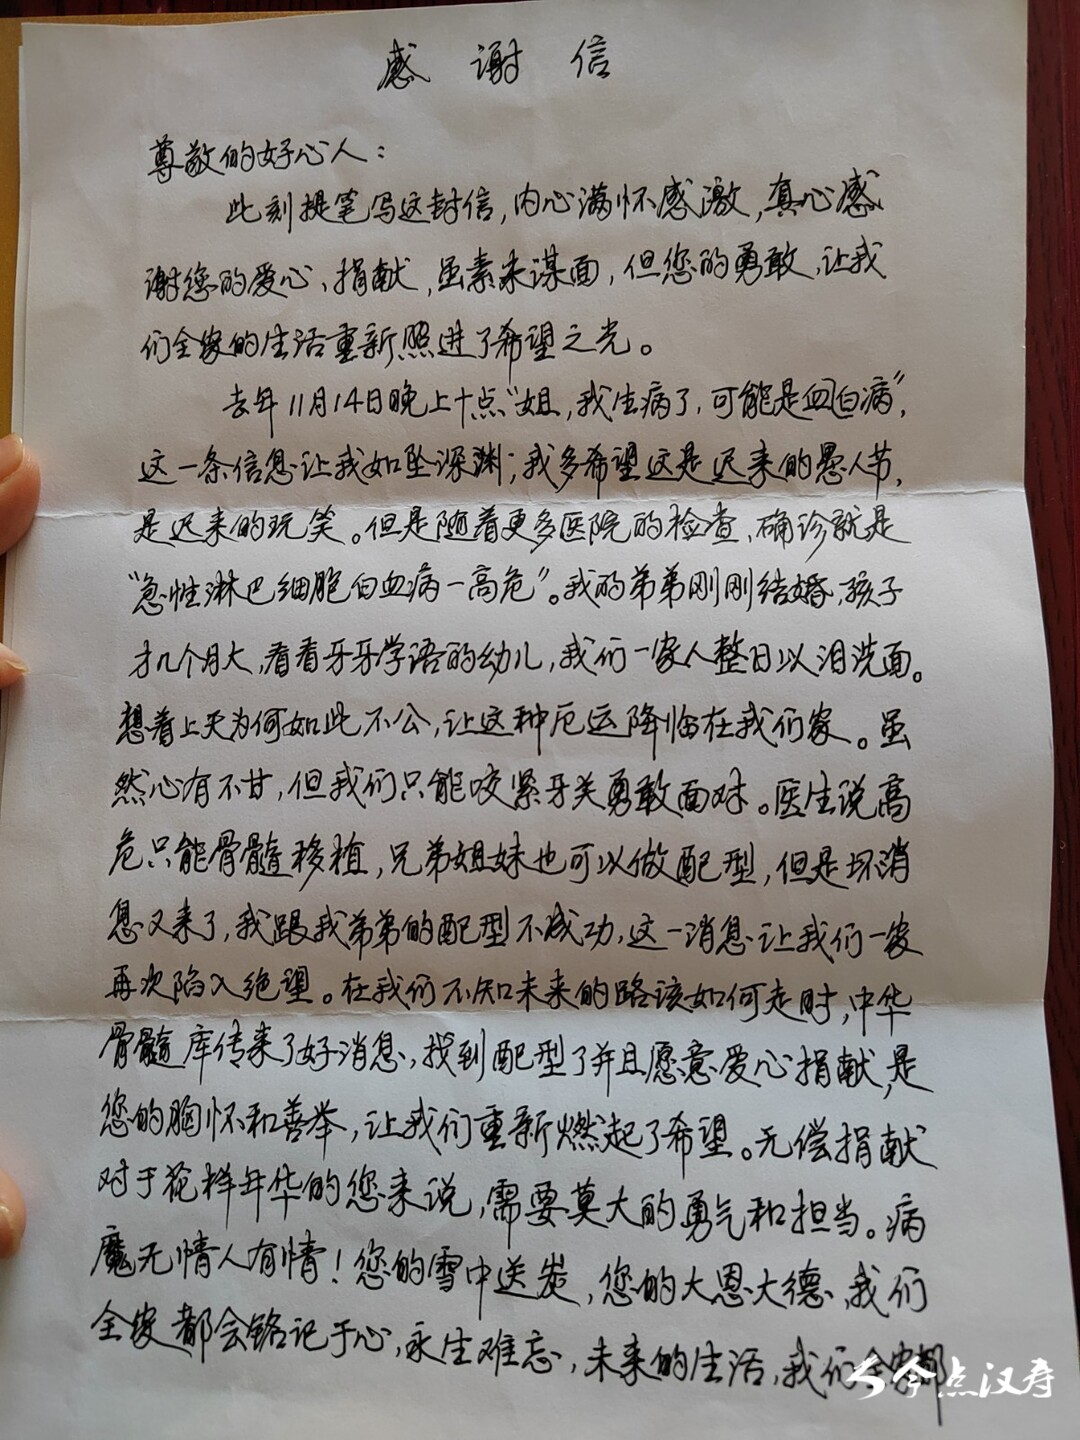 感谢信
尊敬的好心人：
此刻提笔写这封信，内心满怀感激，真心感
谢您的爱心、捐献，虽素未谋面，但您的勇敢，让我
们全家的生活重新照进了希望之光。
去年11月14日晚上十点“姐，我生病了，可能是血白病”，
这一条信息让我如坠深渊；我多希望这是迟来的愚人节，
是迟来的玩笑。但是随着更多医院的检查、确诊就是
“急性淋巴细胞白血病一高危”。我的弟弟刚刚结婚，孩子
才几个月大，看着牙牙学语的幼儿，我们一家人整日以泪洗面。
想着上天为何如此不公，让这种厄运降临在我们家。虽
然心有不甘，但我们只能咬紧牙关勇敢面对。医生说高
危只能骨髓移植，兄弟姐妹也可以做配型，但是坏消
息又来了，我跟我弟弟的配型不成功，这一消息让我们一家
再次陷入绝望。在我们不知未来的路该如何走时，中华
骨髓库传来了好消息，找到配型了并且愿意爱心捐献，是
您的胸怀和善举，让我们重新燃起了希望。无偿捐献
对于花样年华的您来说，需要莫大的勇气和担当。病
魔无情人有情！您的雪中送炭，您的大恩大德，我们
全家都会铭记于心，永生难忘，未来的生活，我们全家都
今点汉寿